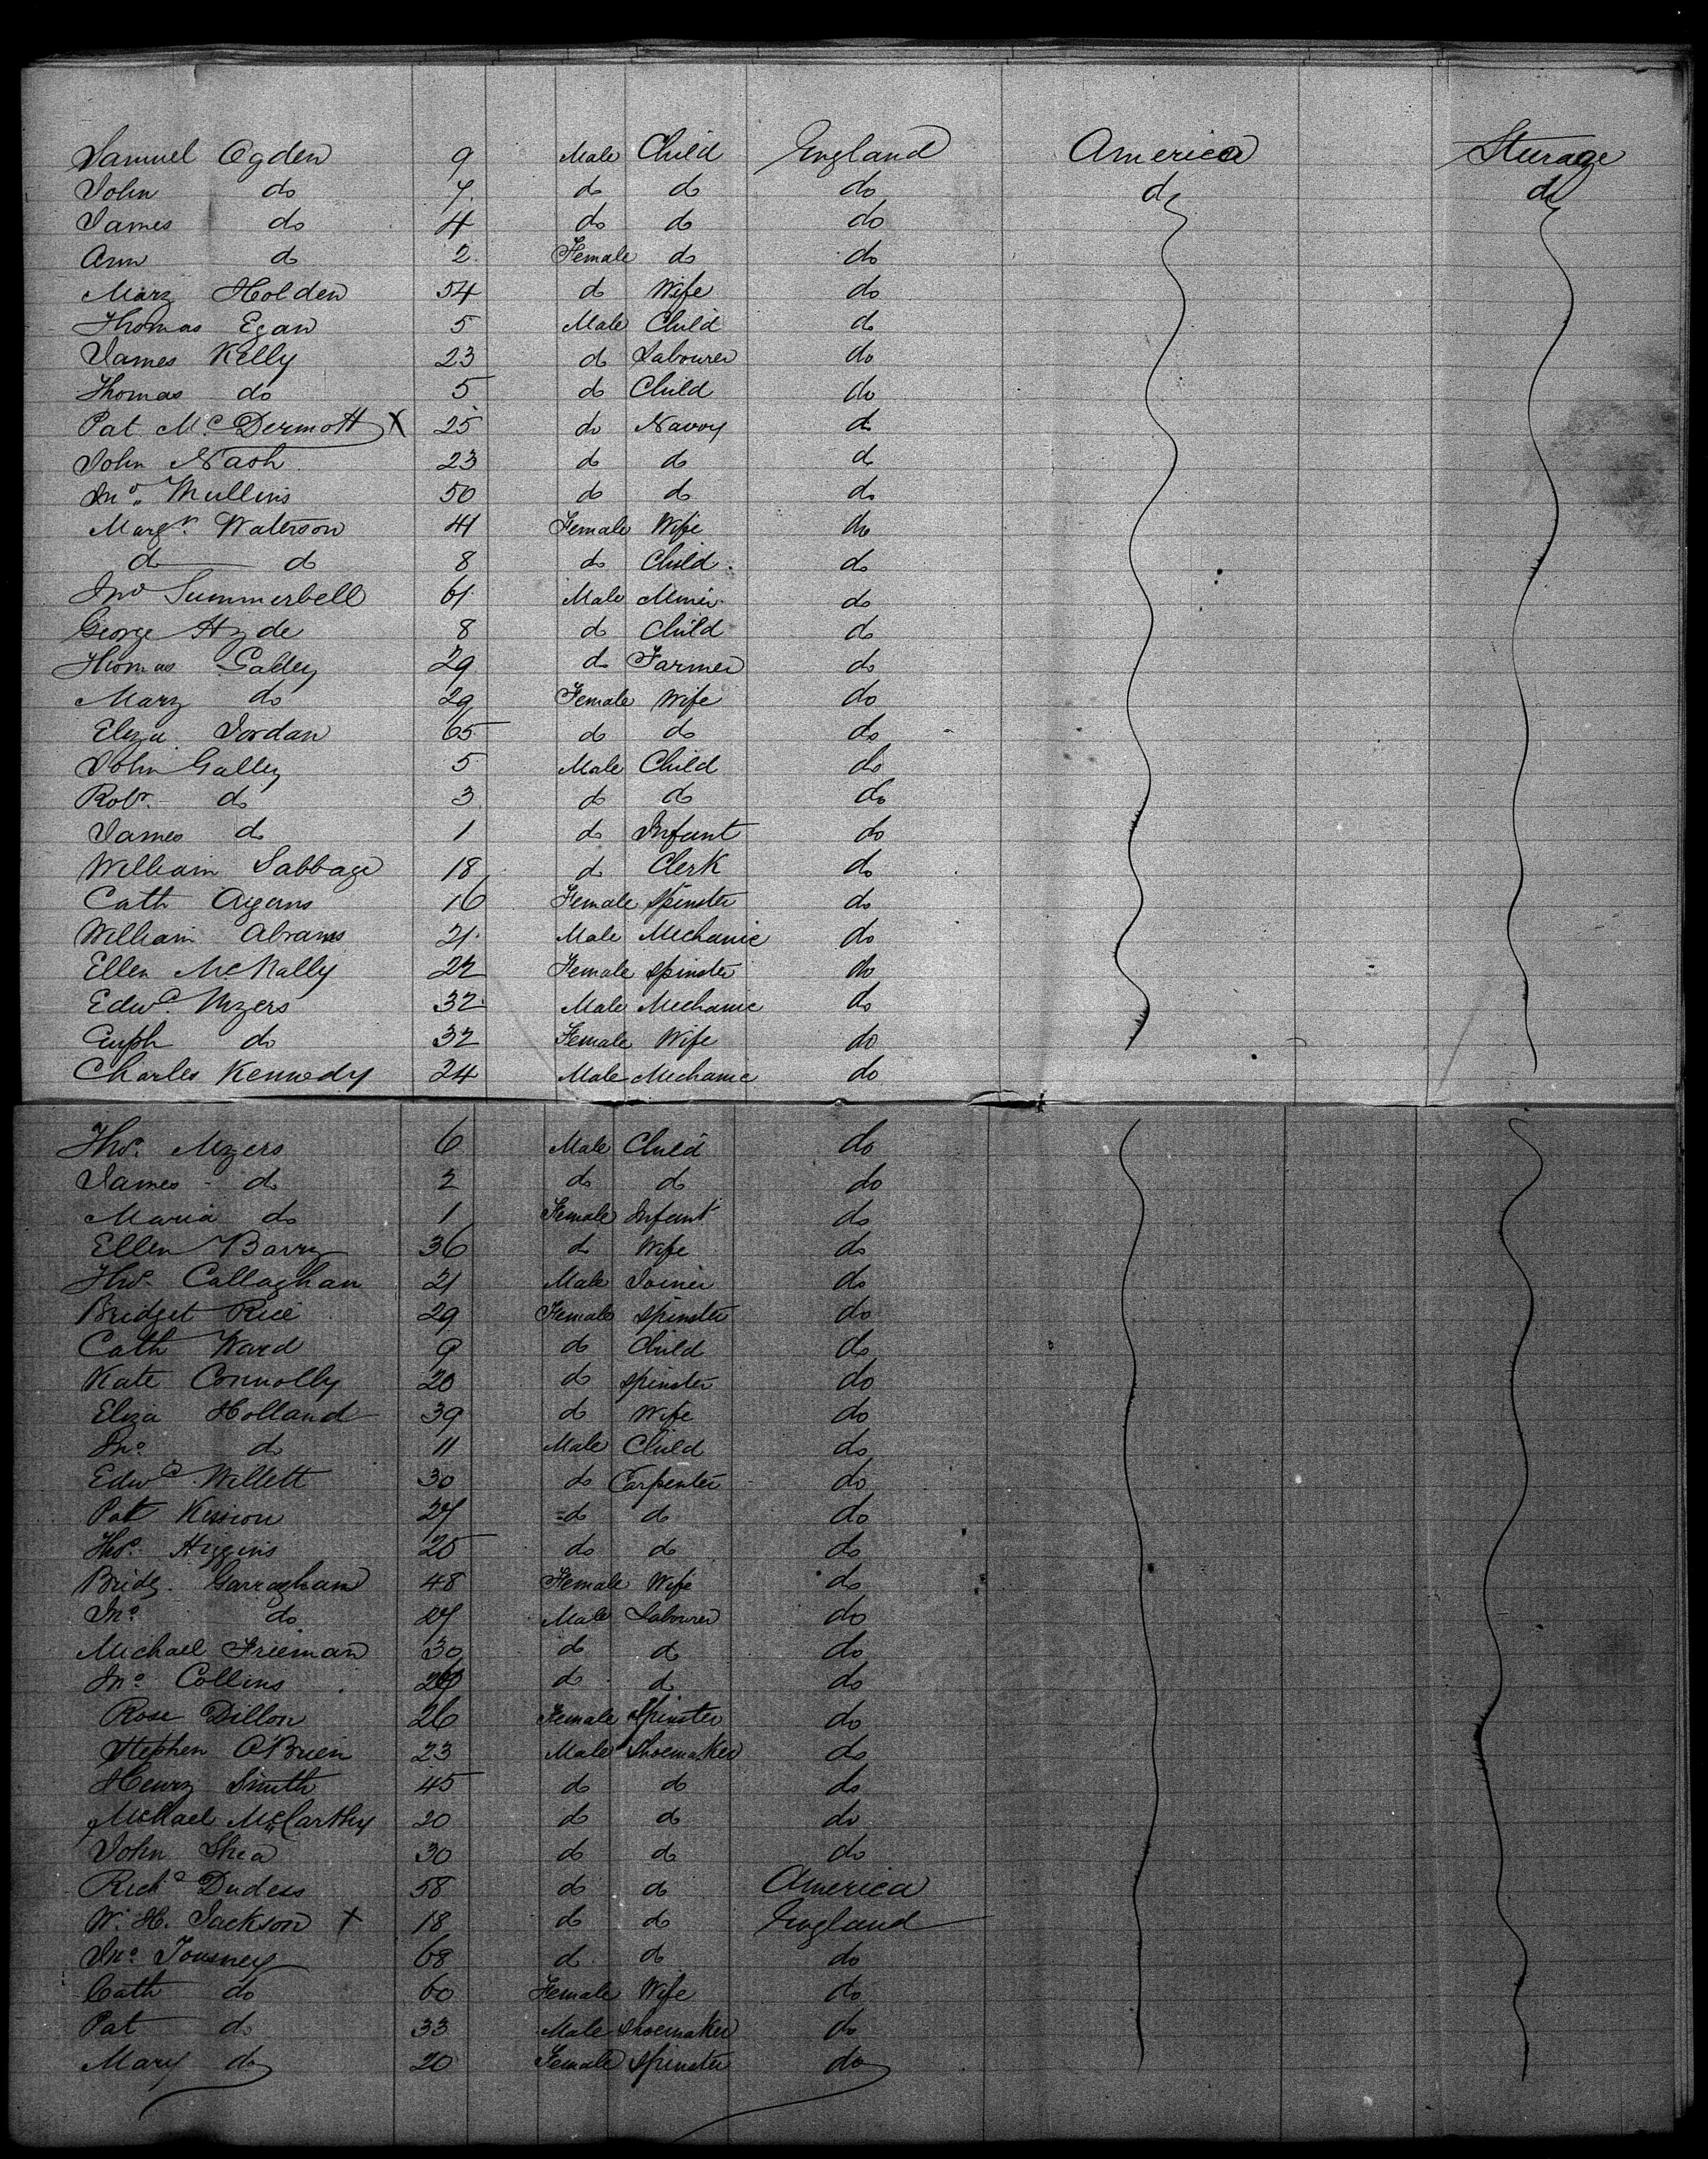 Samuel Ogden 9 Male Child England America Sturage
John do 7. do do do do do
James do 4 do do do
Ann do 2. Female do do
Mary Holden 54 do Wife do
Thomas Egan 5 Male Child do
James Kelly 23 do Labourer do
Thomas do 5 do Child do
Pat McDermott X 25 do Navvy do
John Nash 23 do do do
Jno. Mullins 50 do do do
Margt. Waterson 41 Female Wife do
do do 8 do Child. do
Jno Summerbell 61 Male Miner do
George Hyde 8 do Child do
Thomas Galley 29 do Farmer do
Mary do 29 Female Wife do
Eliza Jordan 65 do do do
John Galley 5 Male Child do
Robt. do 3 do do do
James do 1 do Infant do
William Sabbage 18 do Clerk do
Cath 16 Female Spinster do
William Abrams 21. Male Mechanic do
Ellen McNally 22 Female Spinster do
Edwd. Myers 32 Male Mechanic do
Euph do 32 Female Wife do
Charles Kennedy 24 Male Mechanic do
Thos. Myers 6 Male Child do
James do 2 do do do
Maria do 1 Female Infant do
Ellen Barry 36 do Wife do
Thos. Callaghan 21 Male Joiner do
Bridget Rice 29 Female Spinster do
Cath Ward 9 do Child do
Kate Connolly 20 do Spinster do
Eliza Holland 39 do Wife do
Jno. do 11 Male Child do
Edwd Willett 30 do Carpenter do
Pat Kession 27 do do do
Thos. Higgins 25 do do do
Bridg. Garraghan 48 Female Wife do
Jno. do 27 Male Labourer do
Michael Freeman 30 do do do
Jno. Collins do do do
Rose Dillon 26 Female Spinster do
Stephen O'Brien 23 Male Shoemaker do
Henry Smith 45 do do do
Michael McCarthy 20 do do do
John Shea 30 do do do
Richd Dudess 58 do do America
W. H. Jackson X 18 do do England
Jno. Tousney 68 do do do
Cath do 60 Female Wife do
Pat do 33 Male Shoemaker do
Mary do 20 Female Spinster do